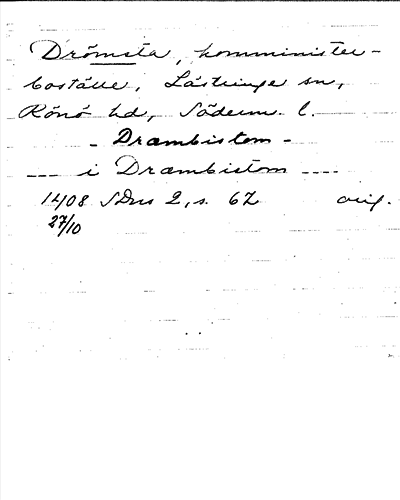 Drömsta, komminister-
boställe, Lästringe sn,
Rönö hd, Söderm. l.
- Drambistom -
--- i Drambistom ----
1408 SDns 2, s. 67 orig.
27/10